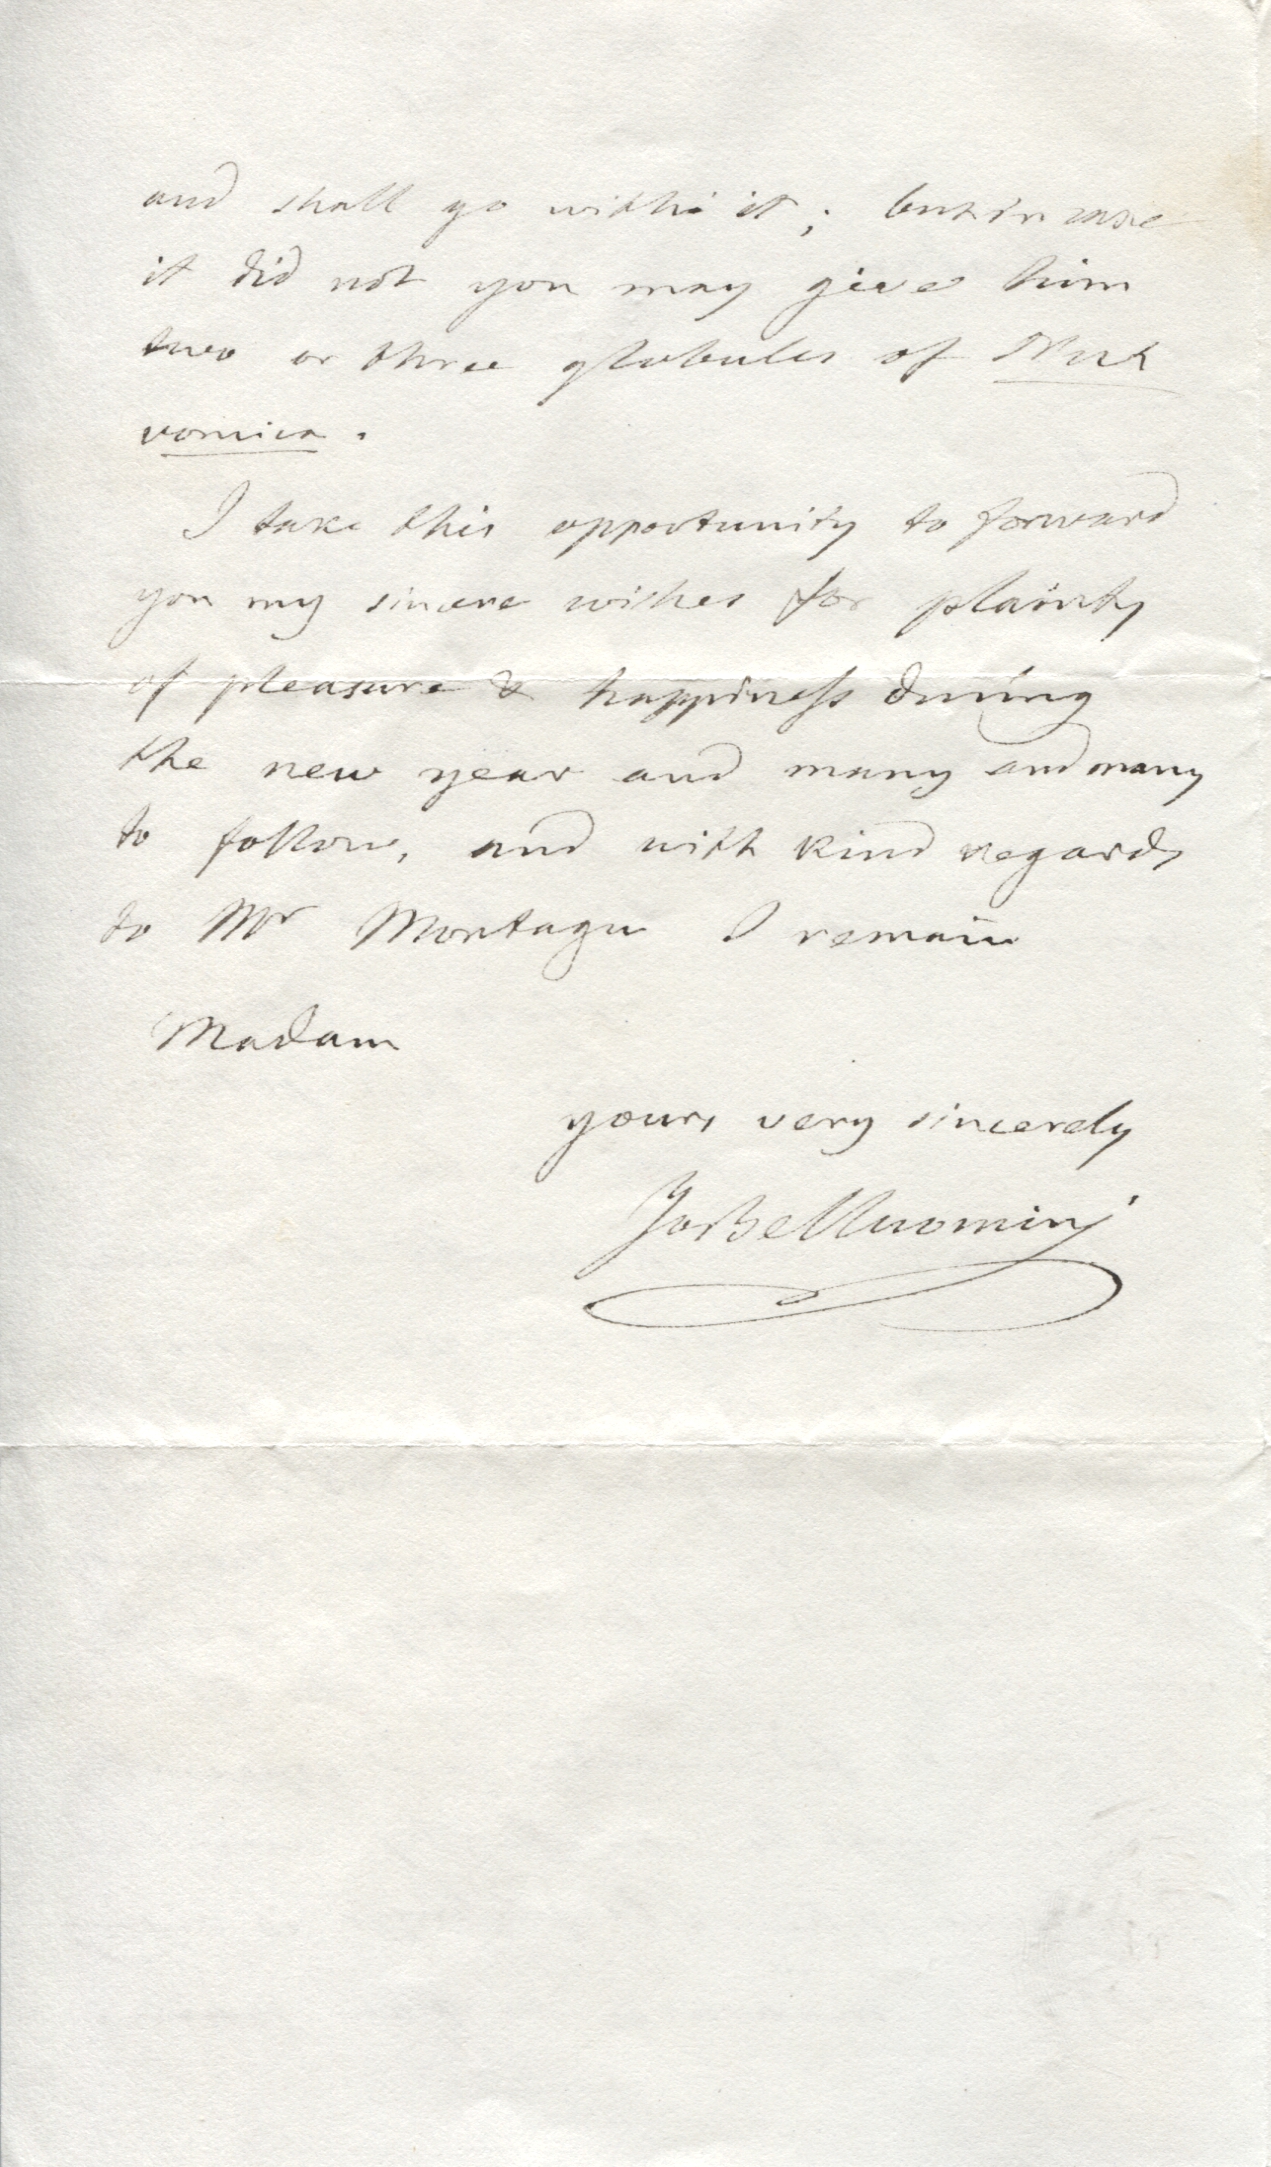 and shall go with it; but in case
it did not you may give him
two or three globules of Nux
vomica.
I take this opportunity to forward
you my sincere wishes for plainty
of pleasure & happiness during
the new year and many and many
to follow, and with kind regards
to Mr Montagu I remain
Madam
yours very sincerely
Jos Belluomini